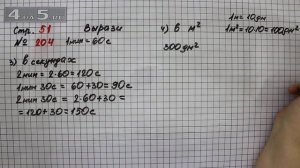 4 по 5 .ру
Стр. 51 Вырази
№ 204 1мин = 60с
3) в секундах
2мин = 2·60 = 120с
1мин 30с = 60+30 = 90с
2мин 30с = 2·60+30 =
= 120+30 = 150с
4) в м²
300дм²
1м = 10дм
1м² = 10·10 = 100дм²